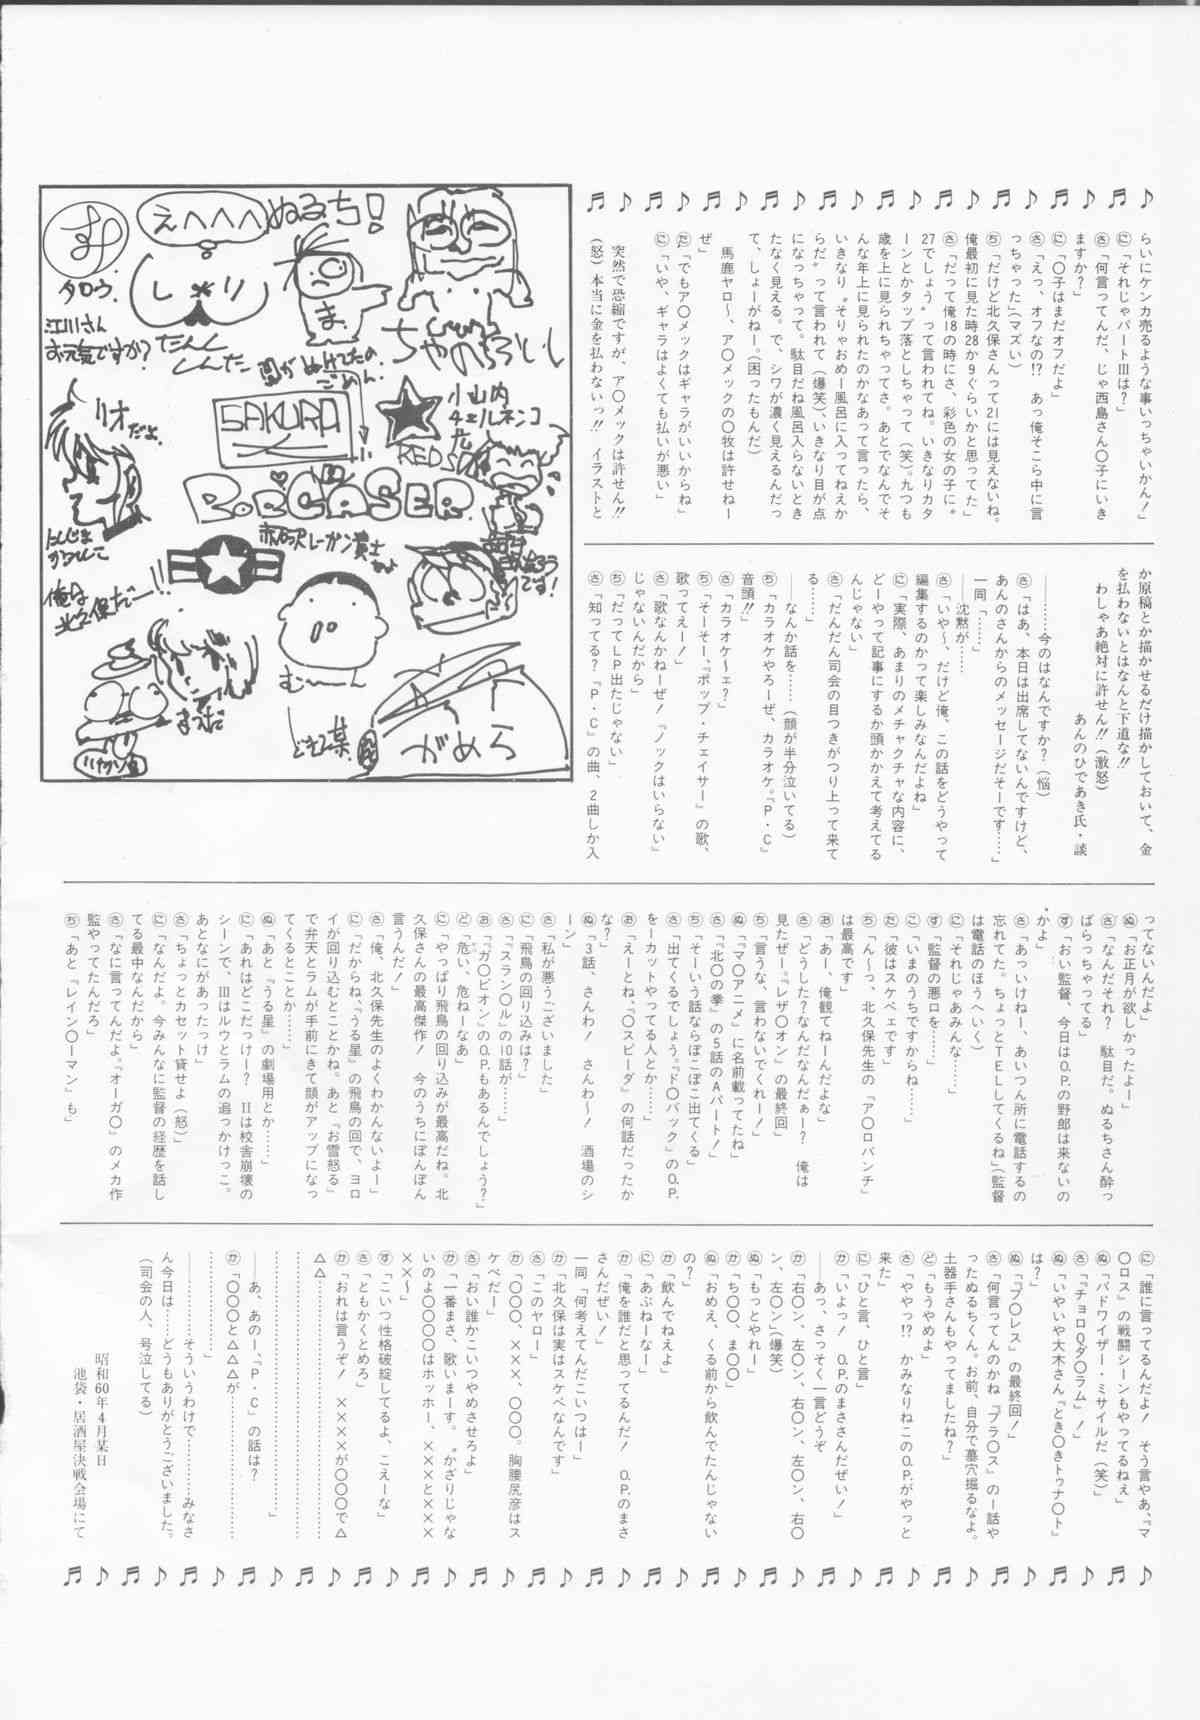 らいにケンカ売るような事いっちゃいかん!」
㋥「それじゃパートⅢは?」
㋚「何言ってんだ、じゃ西島さん〇子にいき
ますか?」
㋥「〇子はまだオフだよ」
㋚「えっ、オフなの!? あっ俺そこら中に言
っちゃった」(マズい)
㋠「だけど北久保さんって21には見えないね。
俺最初に見た時28か9ぐらいかと思ってた」
㋚「だって俺18の時にさ、彩色の女の子に〝
27でしょう〟って言われてね。いきなりカタ
ーンとかタップ落としちゃって(笑)。九つも
歳を上に見られちゃってさ。あとでなんでそ
んな年上に見られたのかなあって言ったら、
いきなり〝そりゃおめー風呂に入ってねえか
らだ〟って言われて(爆笑)、いきなり目が点
になっちゃって。駄目だね風呂入らないとき
たなく見える。で、シワが濃く見えるんだっ
て、しょーがねー。(困ったもんだ)
馬鹿ヤロ〜、ア〇メックの〇牧は許せねー
ぜ」
㋟「でもア〇メックはギャラがいいからね」
㋥「いや、ギャラはよくても払いが悪い」
突然で恐縮ですが、ア〇メックは許せん!!
(怒)本当に金を払わないっ!! イラストと
か原稿とか描かせるだけ描かしておいて、金
を払わないとはなんと下道な!!
わしゃあ絶対に許せん!!(激怒)
あんのひであき氏・談
―………今のはなんですか?(悩)
㋚「はあ、本日は出席してないんですけど、
あんのさんからのメッセージだそーです……」
一同「……」
―沈黙が……
㋚「いや〜、だけど俺、この話をどうやって
編集するのかって楽しみなんだよね」
㋥「実際、あまりのメチャクチャな内容に、
どーやって記事にするか頭かかえて考えてる
んじゃない」
㋚「だんだん司会の目つきがつり上って来て
る……」
―なんか話を……(顔が半分泣いてる)
㋠「カラオケやろーぜ、カラオケ。『P・C』
音頭!!」
㋚「カラオケ〜ェ?」
㋠「そーそー、『ポップ・チェイサー』の歌、
歌ってえー!」
㋚「歌なんかねーぜ!『ノックはいらない』
じゃないんだから」
㋠「だってLP出たじゃない」
㋚「知ってる?『P・C』の曲、2曲しか入
ってないんだよ」
㋦「お正月が欲しかったよー」
㋚「なんだそれ? 駄目だ。ぬるちさん酔っ
ぱらっちゃってる」
㋜「おい監督、今日はO.P.の野郎は来ないの
かよ」
㋚「あっいけねー、あいつん所に電話するの
忘れてた。ちょっとTELしてくるね」(監督
は電話のほうへいく)
㋥「それじゃあみんな……」
㋜「監督の悪口を……」
㋙「いまのうちですからね……」
㋟「彼はスケベェです」
㋠「んーっ、北久保先生の『ア〇ロバンチ』
は最高です」
㋔「あー、俺観てねーんだよな」
㋚「どうした?なんだなんだぁー? 俺は
見たぜー。『レザ〇オン』の最終回」
㋠「言うな、言わないでくれー!」
㋦「『マ〇アニメ』に名前載ってたね」
㋚「『北〇の拳』の5話のAパート!」
㋠「そーいう話ならぽこぽこ出てくる」
㋚「出てくるでしょう。『ド〇バック』のO.P.
をーカットやってる人とか……」
㋔「えーとね。『〇スピーダ』の何話だったか
な?」
㋦「3話、さんわ! さんわ〜! 酒場のシ
ーン」
㋚「私が悪うございました」
㋥「飛鳥の回り込みは?」
㋚「『スラン〇ル』の10話が……」
㋔「『ガ〇ビオン』のO.P.もあるんでしょう?」
㋣「危い、危ねーなあ」
㋥「やっぱり飛鳥の回り込みが最高だね。北
久保さんの最高傑作! 今のうちにぽんぽん
言うんだ!」
㋚「俺、北久保先生のよくわかんないよー」
㋥「だからね、『うる星』の飛鳥の回で、ヨロ
イが回り込むとことかね。あと『お雪怒る』
で弁天とラムが手前にきて顔がアップになっ
てくるとことか……」
㋦「あと『うる星』の劇場用とか……」
㋥「あれはどこだっけー? Ⅱは校舎崩壊の
シーンで、Ⅲはルウとラムの追っかけっこ。
あとなにがあったっけ
㋚「ちょっとカセット貸せよ(怒)」
㋥「なんだよ。今みんなに監督の経歴を話し
てる最中なんだから」
㋚「なに言ってんだよ。『オーガ〇』のメカ作
監やってたんだろ」
㋠「あと『レイン〇ーマン』も」
㋥「誰に言ってるんだよ! そう言やあ、『マ
〇ロス』の戦闘シーンもやってるねぇ」
㋦「バドワイザー・ミサイルだ(笑)」
㋚「『チョロQダ〇ラム』!」
㋦「いやいや大木さん『とき〇きトゥナ〇ト』
は?」
㋦「『プ〇レス』の最終回!」
㋚「何言ってんのかね『プラ〇ス』の一話や
ったぬるちくん。お前、自分で墓穴掘るなよ。
土器手さんもやってましたね?」
㋣「もうやめよ」
㋚「ややっ!? かみなりねこのO.P.がやっと
来た」
㋥「ひと言、ひと言」
㋕「いよっ! O.P.のまささんだぜい!」
―あっ、さっそく一言どうぞ
㋕「右〇ン、左〇ン、右〇ン、左〇ン、右〇
ン、左〇ン」(爆笑)
㋦「もっとやれー!」
㋕「ち〇〇、ま〇〇」
㋦「おめえ、くる前から飲んでたんじゃない
の?」
㋕「飲んでねえよ」
㋥「あぶねーなー」
㋕「俺を誰だと思ってるんだ! O.P.のまさ
さんだぜい!」
一同「何考えてんだこいつはー」
㋕「北久保は実はスケベなんです」
㋚「このヤロー」
㋕「〇〇〇、×××、〇〇〇。胸腰尻彦はス
ケベだー」
㋚「おい誰かこいつやめさせろよ」
㋕「一番まさ、歌いまーす。〝かざりじゃな
いのよ〇〇〇〇はホッホー、×××と×××
××〜」
㋜「こいつ性格破綻してるよ、こえーな」
㋚「ともかくとめろ」
㋕「おれは言うぞ! ××××が〇〇〇で△
△△……………………………
………………………………」
―あ、あのー、『P・C』の話は?
㋕「〇〇〇と△△△が…………………
……………………」
―………そういうわけで………みなさ
ん今日は……どうもありがとうございました。
(司会の人、号泣してる)
昭和60年4月某日
池袋・居酒屋決戦会場にて
えへへへ
ぬるち!
す
タロウ.
江川さん
お元気ですか?
だんし
しんた
ま
間がぬけてたの
ごめん.
リオだよ.
SAKURA
小山内
チェルネンコ
RED S
P.C CaSER
にしじま
かつひこ
赤沢レーガン貴士
俺は
北久保だー!!
です!
むーん
まつだ
がめら